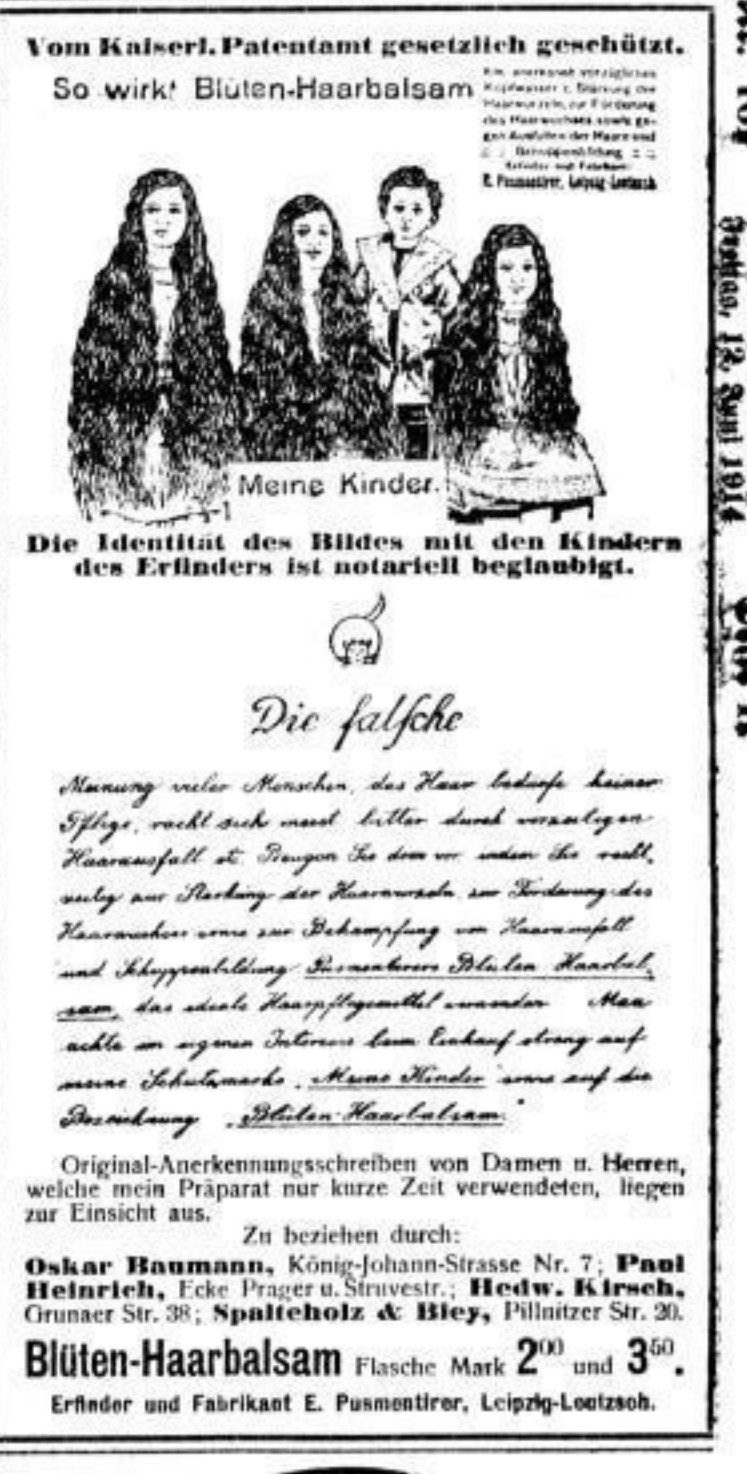 Vom Kaiserl. Patentamt gesetzlich geschützt.
So wirkt Blüten-Haarbalsam
Ein anerkannt vorzügliches
Kopfwasser z. Stärkung der
Haarwurzeln, zur Förderung
des Haarwuchses sowie ge-
gen Ausfallen der Haare und
Schuppenbildung
Erfinder und Fabrikant
E. Pusmentirer, Leipzig-Leutzsch.
Meine Kinder.
Die Identität des Bildes mit den Kindern
des Erfinders ist notariell beglaubigt.
Die falsche
Meinung vieler Menschen, das Haar bedürfe keiner
Pflege, rächt sich meist bitter durch vorzeitigen
Haarausfall etc. Beugen Sie dem vor indem Sie recht-
zeitig zur Stärkung der Haarwurzeln zur Förderung des
Haarwuchses sowie zur Bekämpfung von Haarausfall
und Schuppenbildung Pusmentirers Blüten Haarbal-
sam, das ideale Haarpflegemittel verwenden Man
achte im eigenen Interesse beim Einkauf streng auf
meine Schutzmarke „Meine Kinder" sowie auf die
Bezeichnung „Blüten-Haarbalsam."
Original-Anerkennungsschreiben von Damen u. Herren,
welche mein Präparat nur kurze Zeit verwendeten, liegen
zur Einsicht aus.
Zu beziehen durch:
Oskar Baumann, König-Johann-Strasse Nr. 7; Paul
Heinrich, Ecke Prager u. Struvestr.; Hedw. Kirsch,
Grunaer Str. 38; Spalteholz & Bley, Pillnitzer Str. 20.
Blüten-Haarbalsam Flasche Mark 2⁰⁰ und 3⁵⁰.
Erfinder und Fabrikant E. Pusmentirer, Leipzig-Leutzsch.
Freitag, 12. Juni 1914